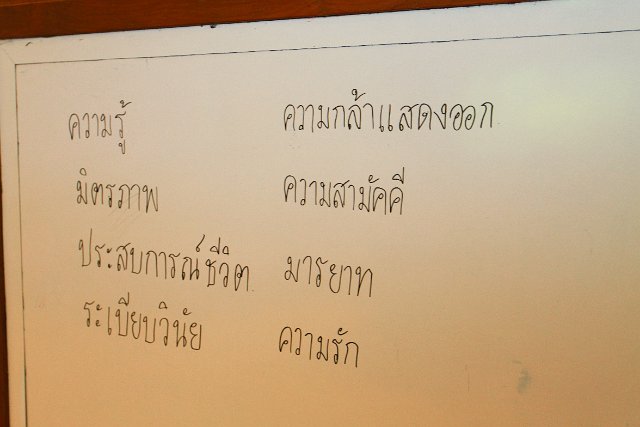 ความรู้ ความกล้าแสดงออก
มิตรภาพ ความสามัคคี
ประสบการณ์ชีวิต มารยาท
ระเบียบวินัย ความรัก